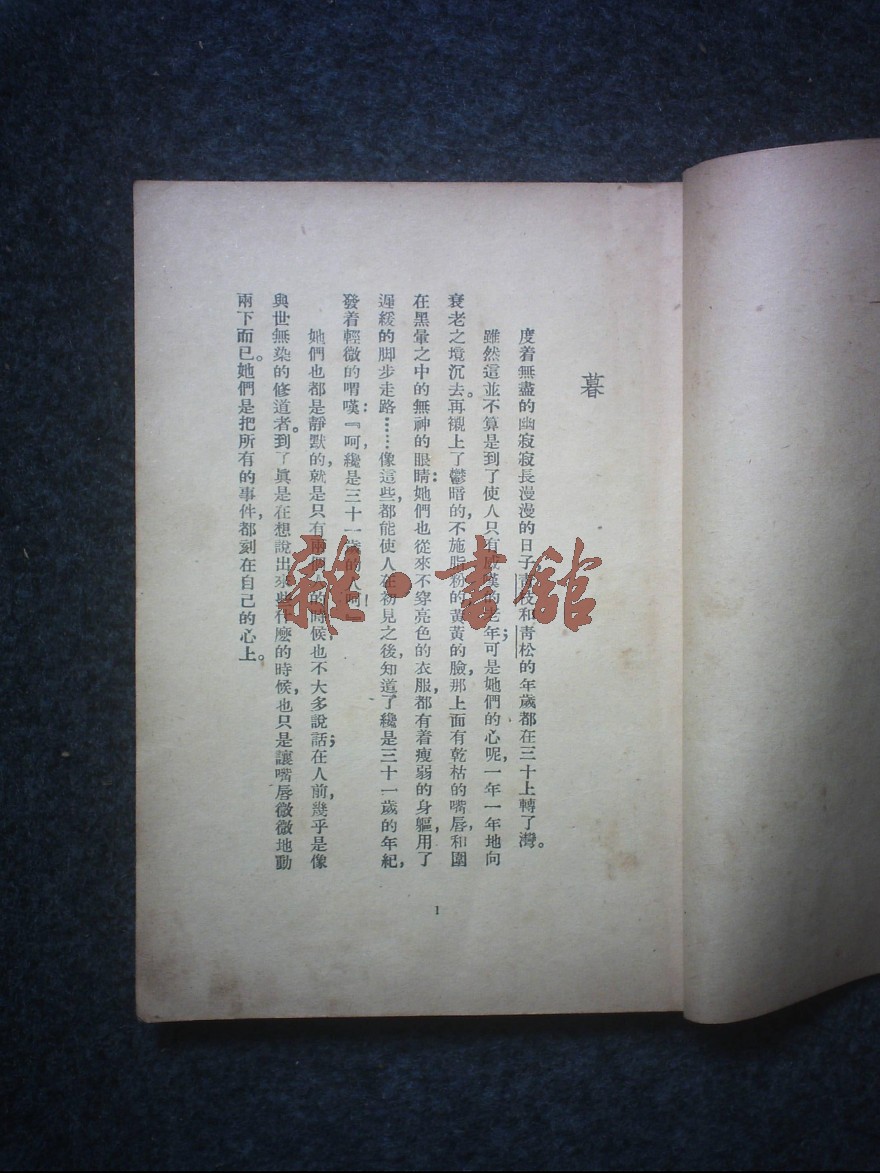 暮
度着無盡的幽寂寂長漫漫的日子，青枝和青松的年歲都在三十上轉了灣。
雖然這並不算是到了使人只有感嘆的老年；可是她們的心呢，一年一年地向
衰老之境沉去。再襯上了鬱暗的，不施脂粉的黃黃的臉，那上面有乾枯的嘴唇和圍
在黑暈之中的無神的眼睛：她們也從來不穿亮色的衣服，都有着瘦弱的身軀，用了
遲緩的脚步走路……像這些，都能使人在初見之後，知道了纔是三十一歲的年紀，
發着輕微的喟嘆：『呵，纔是三十一歲的人呵！』
她們也都是靜默的，就是只有兩個人的時候也不大多說話；在人前，幾乎是像
與世無染的修道者。到了眞是在想說出來些什麽的時候，也只是讓嘴唇微微地動
兩下而已。她們是把所有的事件，都刻在自己的心上。
1
雜·書館